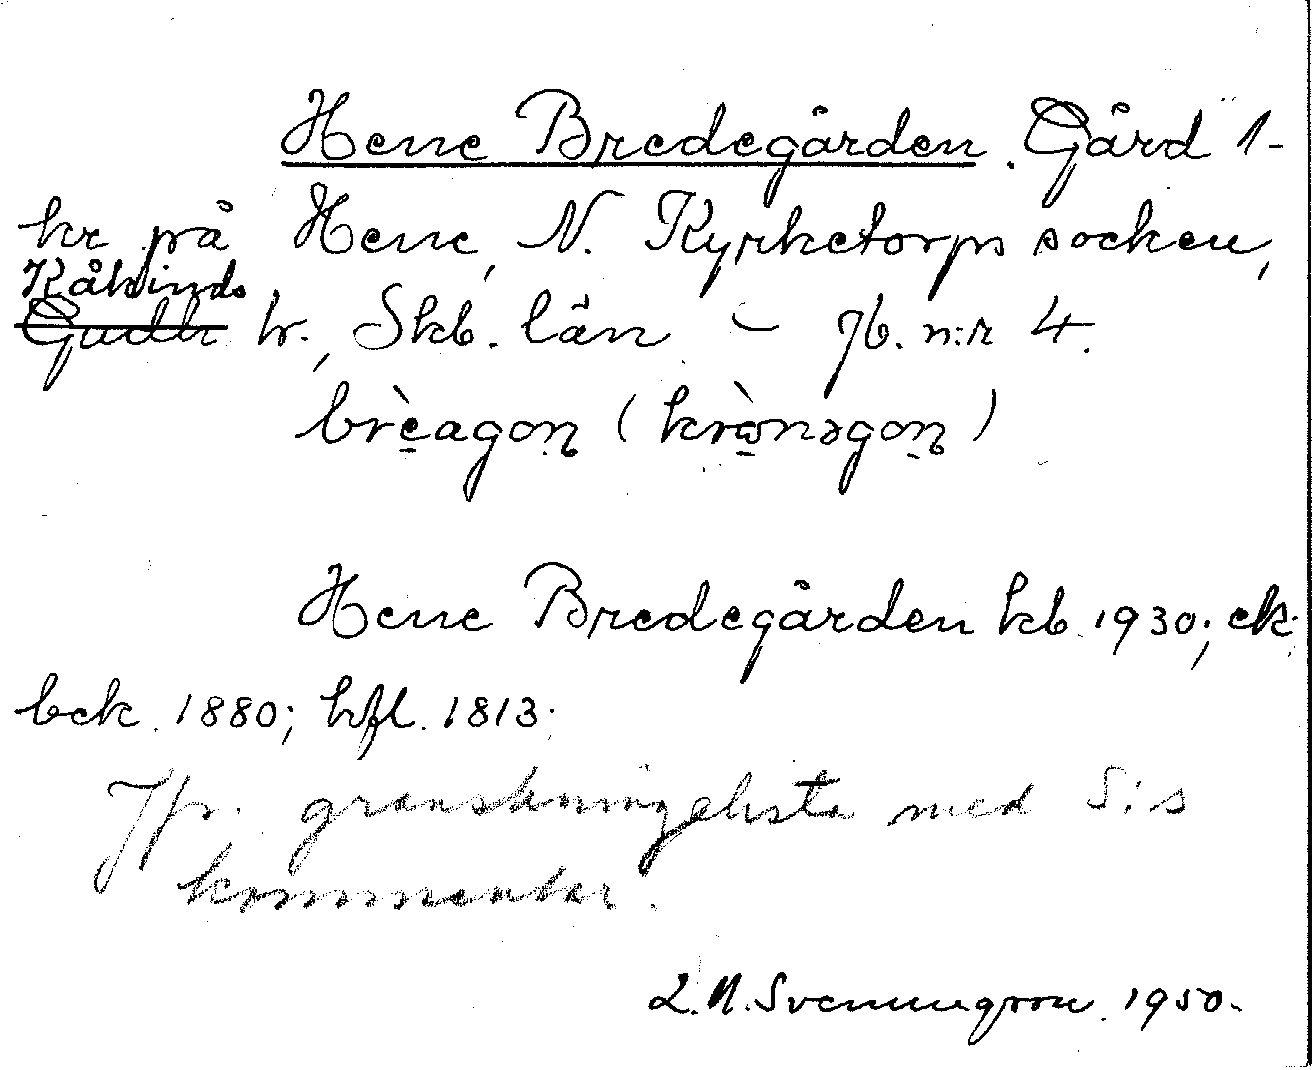 Hene Bredegården. Gård 1-
kr på Hene, N. Kyrketorps socken,
Kåkinds
Gudh hr., Skb. län – Jb. n:r 4.
brèagon̥ (krònəgon̥)
Hene Bredegården kb. 1930; ek.
bek. 1880; hfl. 1813.
Jfr. granskningslista med S:s
kommentar.
L. N. Svenungsson. 1950.